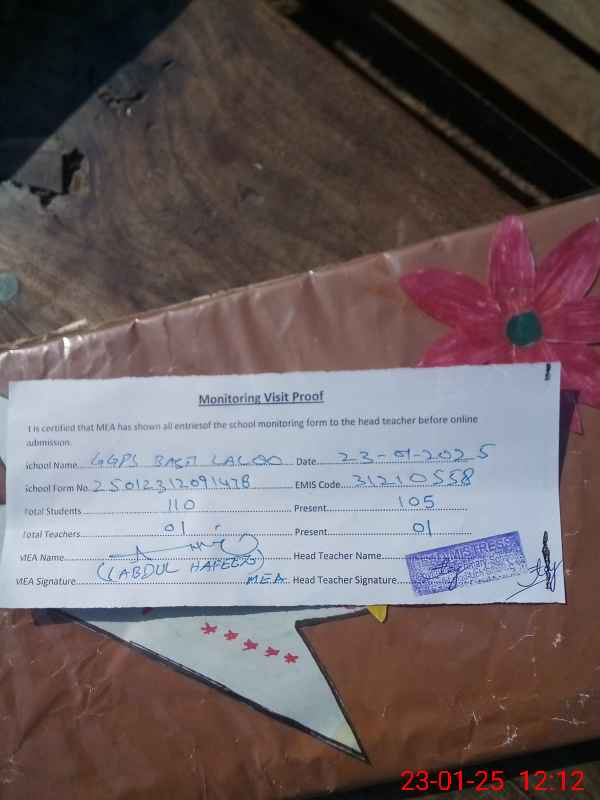 Monitoring Visit Proof
t is certified that MEA has shown all entriesof the school monitoring form to the head teacher before online
ubmission.
School Name GGPS BASTI LALOO Date 23-01-2025
School Form No. 25012312091478 EMIS Code 31210558
Total Students 110 Present 105
Total Teachers 01 Present 01
MEA Name Head Teacher Name
(ABDUL HAFEEZ)
MEA Signature M.E.A. Head Teacher Signature
HEADMISTRESS
23-01-25 12:12